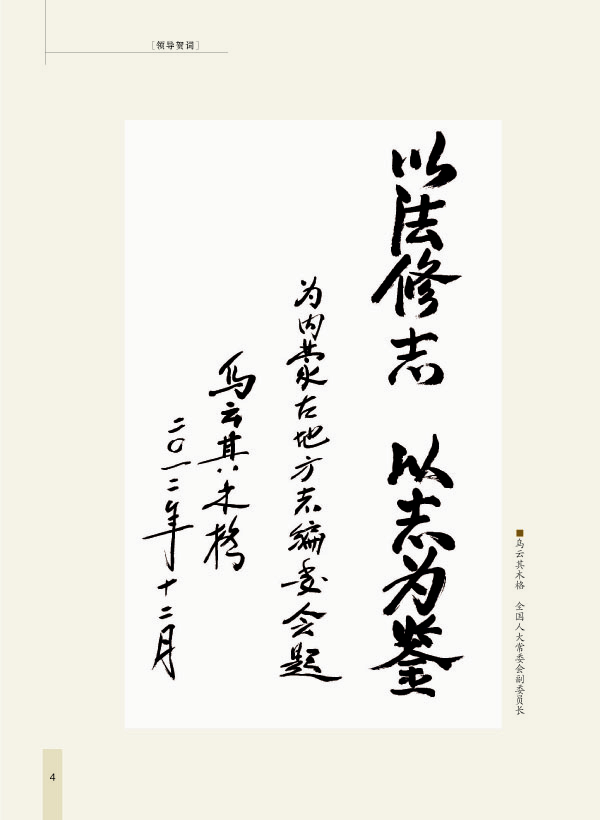 ［领导贺词］
以法修志 以志为鉴
为内蒙古地方志编委会题
乌云其木格
二〇一二年十二月
■乌云其木格 全国人大常委会副委员长
4